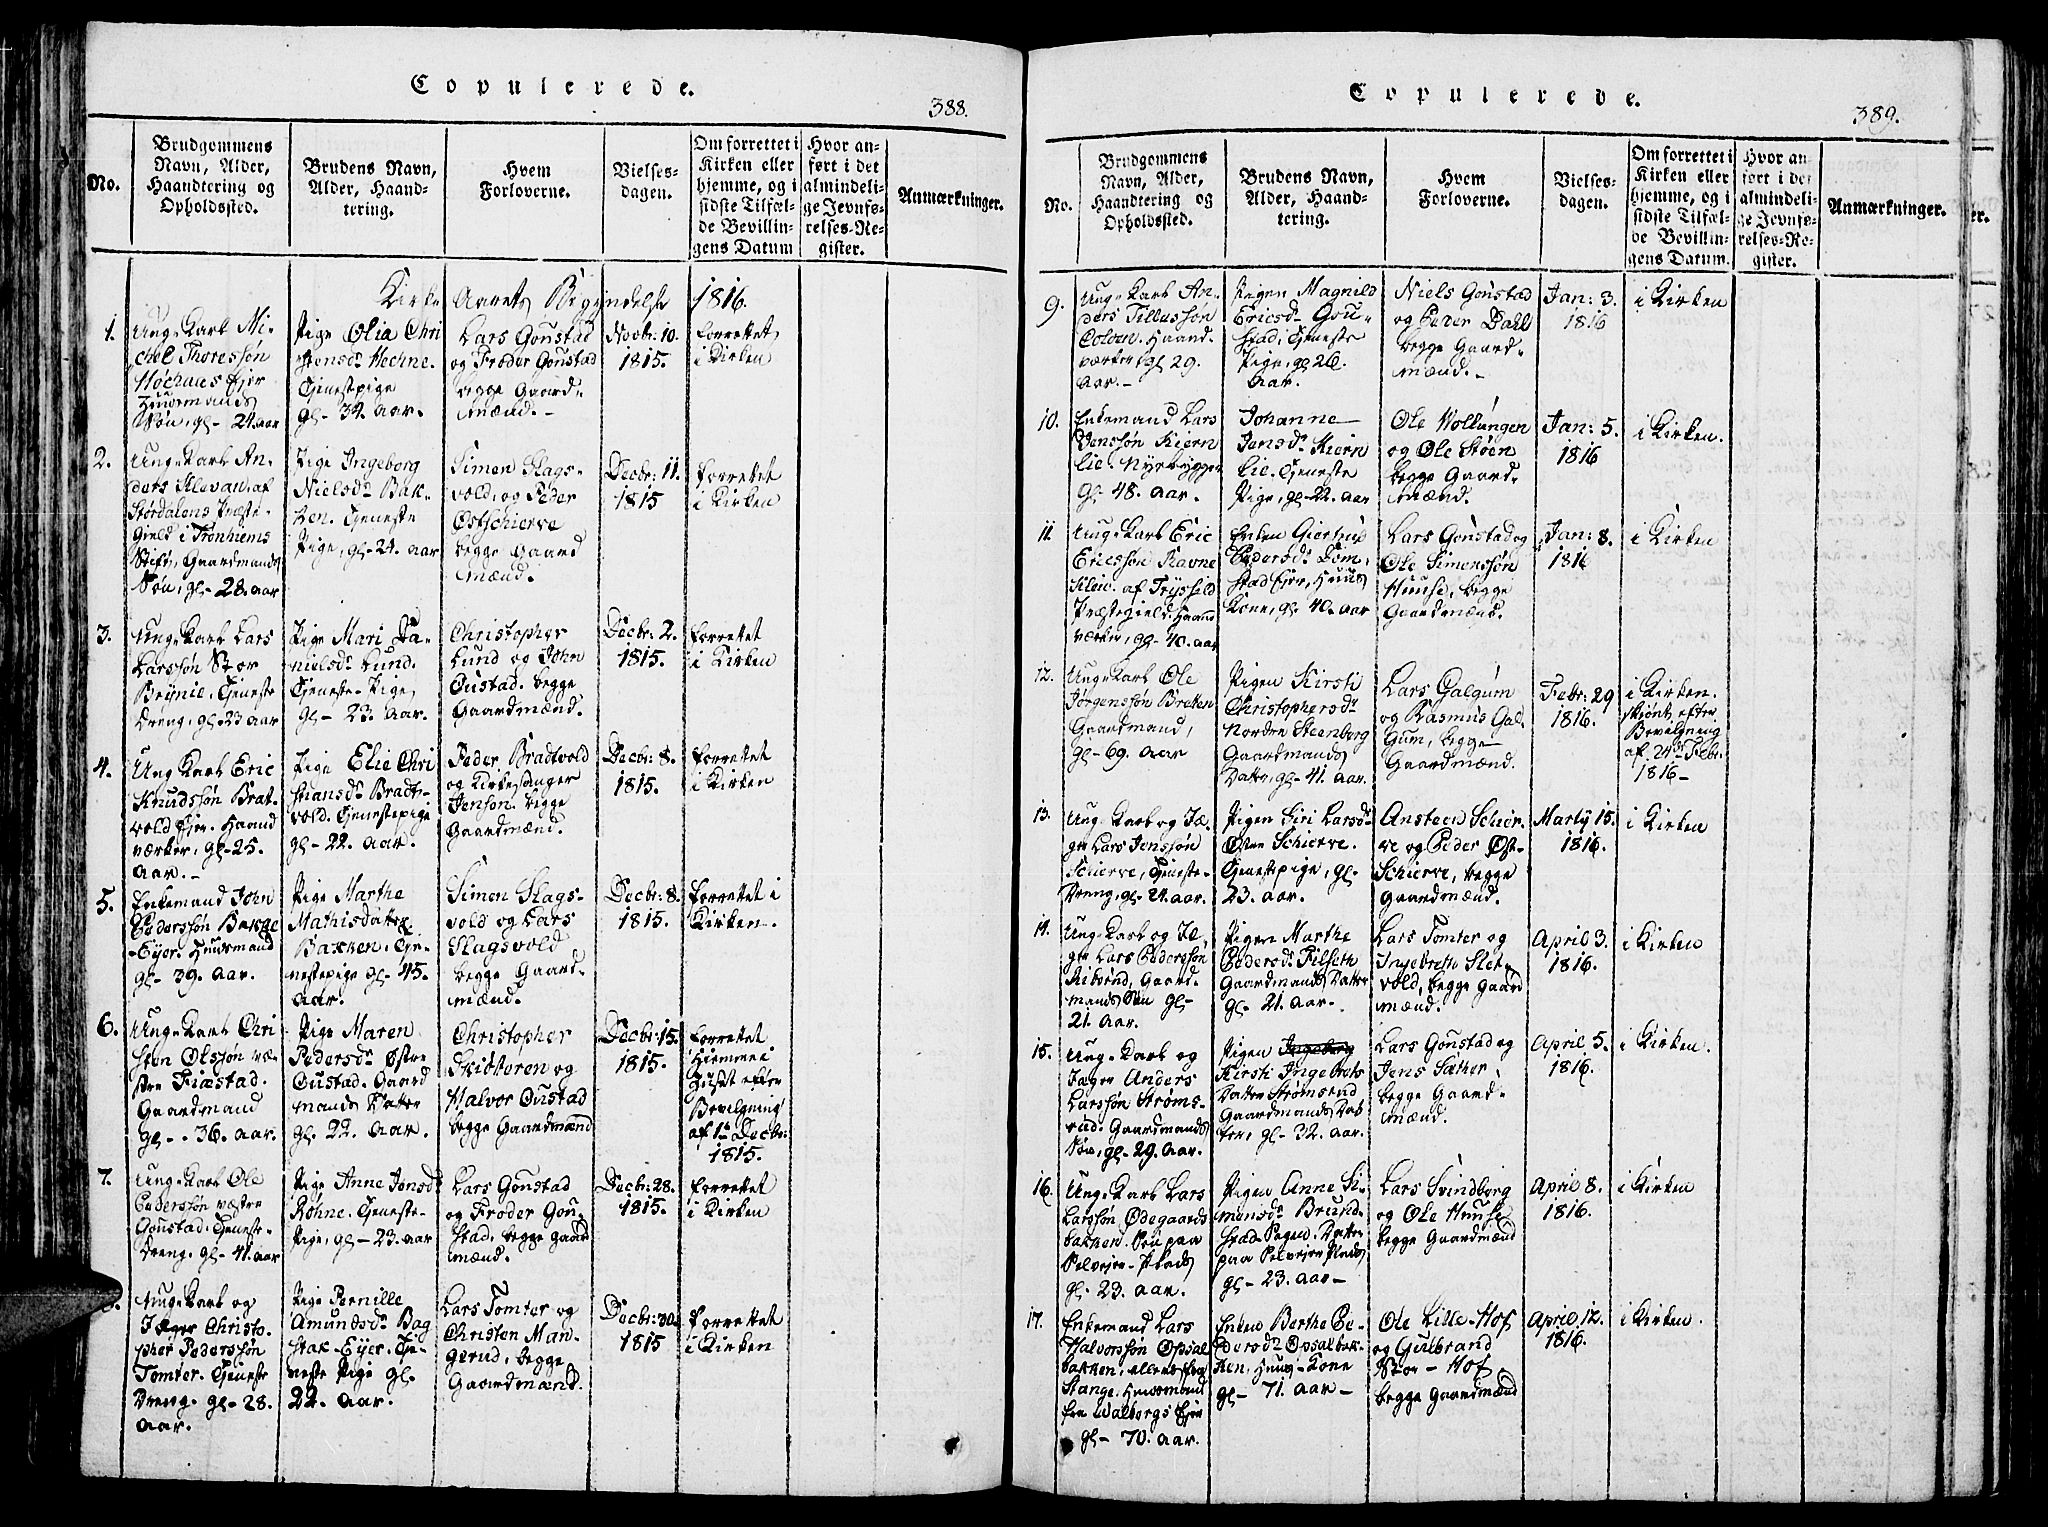 Copulerede.
388.
No.
Brudgommens
Navn, Alder,
Haandtering og
Opholdssted.
Brudens Navn,
Alder, Haand-
tering.
Hvem
Forloverne.
Vielses-
dagen.
Om forrettet i
Kirken eller
hjemme, og i
sidste Tilfæl-
de Bevillin-
gens Datum
Hvor an-
ført i det
almindeli-
ge Jevnfø-
relses-Re-
gister.
Anmærkninger.
Kirke Aarets Begyndelse 1816.
1.
Ung-Karl Mi-
chel Thoresøn
Høchaus Ejer
Huusmands
Søn, gl- 24 aar
Pige Olia Chri
stensdr Hechne.
Tjenestpige
gl- 34. aar.
Lars Gonstad
og Froder Gonstad
begge Gaard-
mænd.-
Novbr: 10.
1815.
forrettet
i Kirken
2.
Ung-Karl An-
ders Klevan, af
Stördalens Præste-
Gield i Tronhiems
Stift, Gaardmands
Søn, gl- 28. aar
Pige Ingeborg
Nielsdr Bak-
ken. Tjeneste
Pige, gl- 24. aar
Simen Slags-
vold, og Peder
Østschierve
begge Gaard
mænd.
Decbr: 11.
1815
forrettet
i Kirken
3.
Ung-Karl Lars
Larssøn Stor
Brynie, Tjeneste
Dreng, gl- 23 aar
Pige Mari Da-
nielsdr Lund.
Tjeneste-Pige,
gl- 23. aar.
Christopher
Lund og John
Oustad. begge
Gaardmænd.
Decbr: 2.
1815.
forrettet
i Kirken
4.
Ung Karl Eric
Knudssøn Brat-
vold Ejer. Haand
værker, gl- 25.
aar.-
Pige Elie Chri
stiansdr Bradt-
vold. Tjenestepige
gl- 22. aar.
Peder Bradtvold
og Kirkesanger
Jenson. begge
Gaardmænd.
Decbr: 8.
1815.
forrettet
i Kirken
5.
Enkemand John
Pederssøn Bakke
-Eyer. Huusmand
gl- 39. aar.
Pige Marthe
Mathisdatter
Bakken, Tje-
nestepige gl- 45.
aar.
Simen Slags-
vold og Lars
Slagsvold
begge Gaard-
mænd.
Decbr: 8.
1815.
forrettet i
Kirken.
6.
Ung-Karl Chri
sten Olssøn væ-
stre Fiæstad.
Gaardmand
gl- - 36. aar.
Pige Maren
Pedersdr Østre
Oustad. Gaard
mands Datter
gl. 22. aar.
Christopher
Skiötören og
Halvor Oustad
begge Gaardmænd
Decbr: 15.
1815.
forrettet
Hiemme i
Huset efter
Bevilgning
af 1te Decbr:
1815.
7.
Ung-Karl Ole
Pederssøn væstre
Gonstad. Tjeneste-
Dreng. gl- 41. aar
Pige Anne Jonsdr
Röhne. Tjeneste-
Pige, gl- 23. aar
Lars Gonstad
og Froder Gon-
stad, begge gaard
mænd.
Decbr: 28.
1815.
forrettet
i Kirken
Ung-Karl og
Jæger Christo-
pher Pederssøn
Tomter. Tjeneste
Dreng. gl- 28.
aar.
Pige Pernille
Amundsdr Bag
stak-Eyer. Tje-
neste Pige gl.
22. aar.
Lars Tomter og
Christen Man-
gerud, begge
Gaardmænd.
Decbr: 30.
1815
forrettet
i Kirken
Copulerede.
389.
No.
Brudgommens
Navn, Alder,
Haandtering og
Opholdssted.
Brudens Navn,
Alder, Haand-
tering.
Hvem
Forloverne.
Vielses-
dagen.
Om forrettet i
Kirken eller
hjemme, og i
sidste Tilfæl-
de Bevillin-
gens Datum.
Hvor an-
ført i det
almindeli-
ge Jevnfø-
relses-Re-
gister.
Anmærkninger.
9.
Ung-Karl An-
ders Tillessøn
Colden. Haand-
værker, gl 29.
aar.-
Pigen Magnild
Ericsdr Gou-
stad, Tjeneste
Pige, gl 26.
aar.
Niels Gonstad
og Peder Dahl
begge Gaard-
mænd.-
Jan: 3.
1816
i Kirken
10.
Enkemand Lars
Jenssøn Kiern
lie. Nyebygger
Gl- 48. aar.
Johanne
Jensdr Kiern
lie. Tjeneste
Pige, gl- 22. aar
Ole Hollungen
og Ole Støen
begge Gaard-
mænd.
Jan: 5.
1816
i Kirken.
11
Ung-Karl Eric
Ericssøn Ravne
Kleiv. af Tryssild
Præstegield. Haand
værker, gl- 40. aar
Enken Giertrud
Pedersdr Dom-
stad Ejer, Huus
Kone, gl. 40. aar
Lars Gonstad og
Ole Simenssøn
Huuse, begge
Gaardmænd.
Jan: 8.
1816
i Kirken
12.
Ung-Karl Ole
Jörgenssøn Bretten
Gaardmand,
gl- 69. aar
Pigen Kirsti
Christophersdr
Nordre Steenborg
Gaardmands
Datter, gl- 41. aar.
Lars Galgum
og Rasmus Gal-
gum, begge
Gaardmænd.
Febr: 29
1816.
i Kirken.
skjönt efter
Bevilgning
af 24de Febr:
1816-
13.
Ung-Karl og Jæ-
ger Lars Jenssøn
Schierve, Tjeneste-
Dreng, gl- 24. aar.
Pigen Siri Larsdr
Østre Schierve.
Tjenestepige, gl-
23. aar.
Ansteen Schier-
ve og Peder Øst-
Schierve, begge
Gaardmænd.
Martij 15.
1816.
i Kirken
14.
Ung-Karl og Jæ-
ger Lars Pederssøn
Kibönd, Gaard-
mands Søn gl-
21. aar.
Pigen Marthe
Pedersdr Filseth
Gaardmands Datter
gl- 21. aar.
Lars Tomter og
Ingebreth Slet-
vold, begge Gaard
mænd.
April 3.
1816.
i Kirken
15.
Ung-Karl og
Jæger Anders
Larssøn Strøms-
rud. Gaardmands
Søn, gl- 29. aar.
Pigen Ingeborg
Kirsti Ingebrets
Datter Strömsrud
Gaardmands Dat
ter, gl- 32. aar.
Lars Gonstad og
Jens Sæther.
begge Gaard-
mænd.
April 5.
1816.
i Kirken.
16.
Ung-Karl Lars
Larssøn Ødegaards
bakken. Søn paa
Selvejer-Plads
gl- 23. aar.
Pigen Anne Si-
mensdr Brund-
stad Pigen. Datter
paa Selvejer Plads
gl- 23. aar-
Lars Svindborg
og Ole Huuse
begge Gaardmænd
April 8.
1816.
i Kirken
17.
Enkemand Lars
Halvorssøn Opsal
bakken, eller
Stange. Huusmand
fra Walborgs Ejer
gl- 70. aar.
Enken Berthe Pe-
dersdr Opsalbak-
ken, Huus-Kone
gl- 71. aar-
Ole Lille-Hof
og Gulbrand
Stor-Hof
begge Gaardmænd
April 12.
1816.
i Kirken.